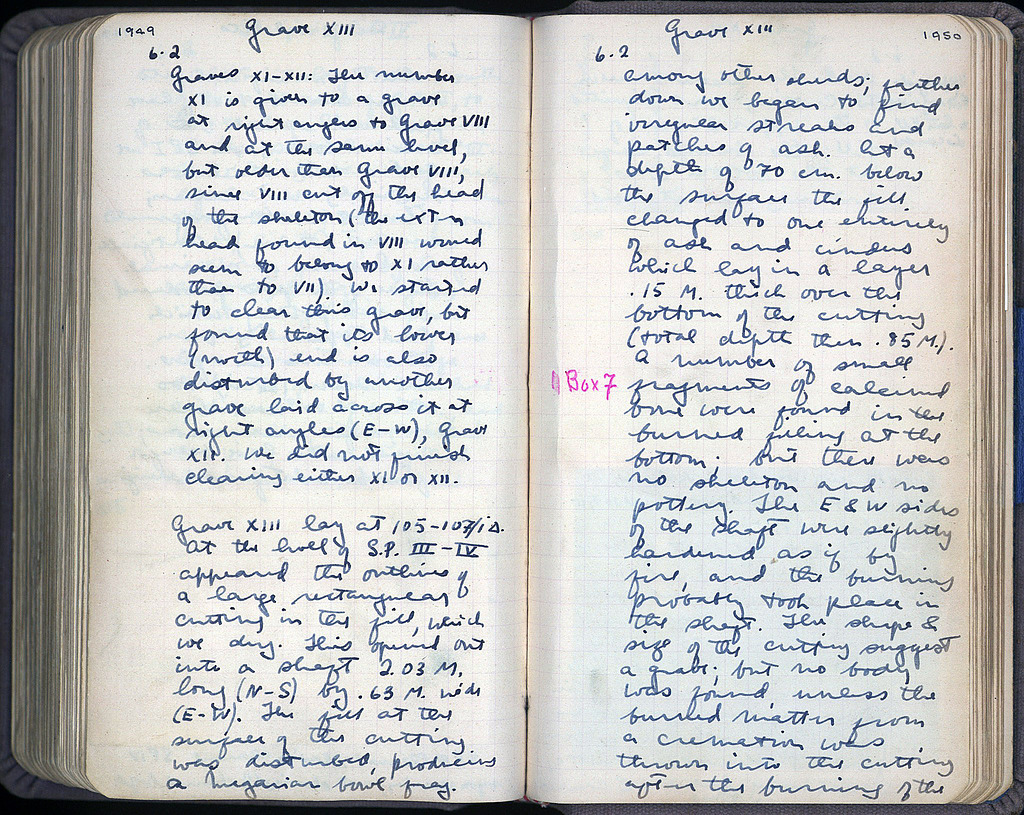 1949
Grave XIII
6.2
Graves XI-XII: The number
XI is given to a grave
at right angles to Grave VIII
and at the same level,
but older than Grave VIII,
since VIII cut off the head
of the skeleton (the extra
head found in VIII would
seem to belong to XI rather
than to VII). We started
to clear this grave, but
found that its lower
(north) end is also
disturbed by another
grave laid across it at
right angles (E-W), Grave
XII. We did not finish
clearing either XI or XII.
Grave XIII lay at 105-107/
At the level of S.P. III-IV
appeared the outlines of
a large rectangular
cutting in the fill, which
we dug. This opened out
into a shaft 2.03 M.
long (N-S) by .63 M. wide
(E-W). The fill at the
surface of this cutting
was disturbed, producing
a megarian bowl frag.
Grave XIII
1950
6.2
among other sherds; farther
down we began to find
irregular streaks and
patches of ash. At a
depth of 70 cm. below
the surface the fill
changed to one entirely
of ash and cinders
which lay in a layer
.15 M. thick over the
bottom of the cutting
(total depth then .85 M.).
A number of small
Box 7
fragments of calcined
bone were found in the
burned filling at the
bottom; but there was
no skeleton and no
pottery. The E & W sides
of the shaft were slightly
hardened as if by
fire, and the burning
probably took place in
the shaft. The shape &
size of the cutting suggest
a grave; but no body
was found unless the
burned matter from
a cremation was
thrown into the cutting
after the burning of the